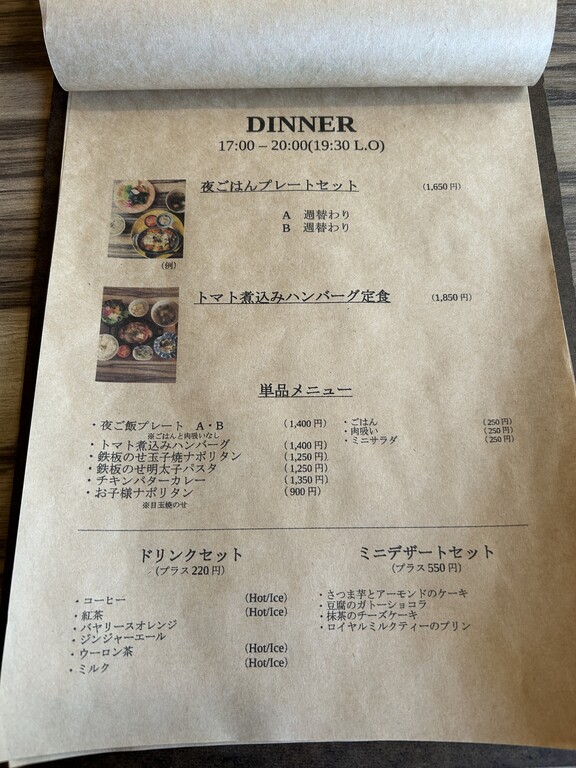 DINNER
17:00 – 20:00(19:30 L.O)
夜ごはんプレートセット (1,650 円)
A 週替わり
B 週替わり
(例)
トマト煮込みハンバーグ定食 (1,850 円)
単品メニュー
・夜ご飯プレート A・B (1,400 円)
※ごはんと肉吸いなし
・トマト煮込みハンバーグ (1,400 円)
・鉄板のせ玉子焼ナポリタン (1,250 円)
・鉄板のせ明太子パスタ (1,250 円)
・チキンバターカレー (1,350 円)
・お子様ナポリタン (900 円)
※目玉焼のせ
・ごはん (250 円)
・肉吸い (250 円)
・ミニサラダ (250 円)
ドリンクセット
(プラス 220 円)
・コーヒー (Hot/Ice)
・紅茶 (Hot/Ice)
・バヤリースオレンジ
・ジンジャーエール
・ウーロン茶 (Hot/Ice)
・ミルク (Hot/Ice)
ミニデザートセット
(プラス 550 円)
・さつま芋とアーモンドのケーキ
・豆腐のガトーショコラ
・抹茶のチーズケーキ
・ロイヤルミルクティーのプリン